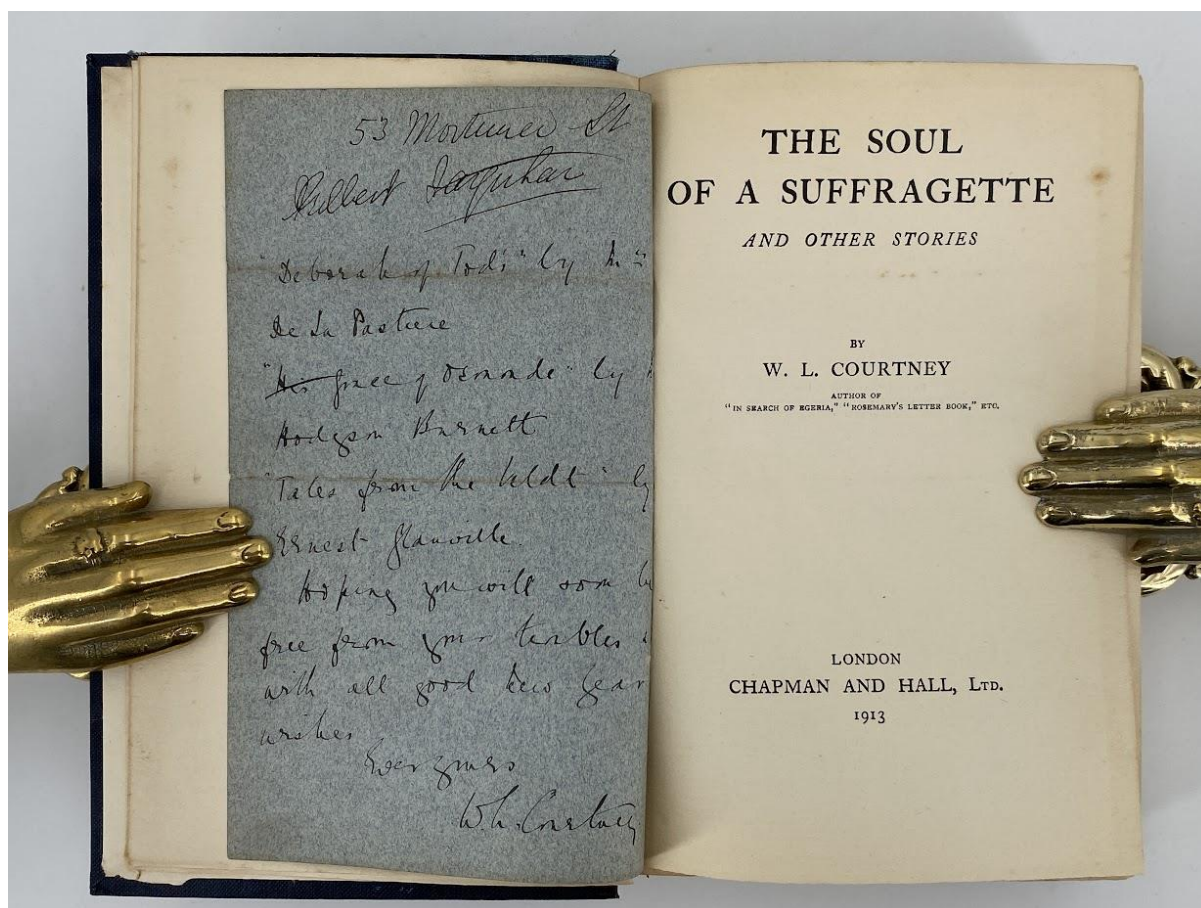 53 Mortimer St
Gilbert Farquhar
"Deborah of Tod's" by Mrs
De La Pasture
"His Grace of Osmonde" by
Hodgson Burnett
"Tales from the Veldt" by
Ernest Glanville.
Hoping you will soon be
free from your troubles
with all good New Year
wishes
Ever yours
W. L. Courtney
THE SOUL
OF A SUFFRAGETTE
AND OTHER STORIES
BY
W. L. COURTNEY
AUTHOR OF
"IN SEARCH OF EGERIA," "ROSEMARY'S LETTER BOOK," ETC.
LONDON
CHAPMAN AND HALL, LTD.
1913